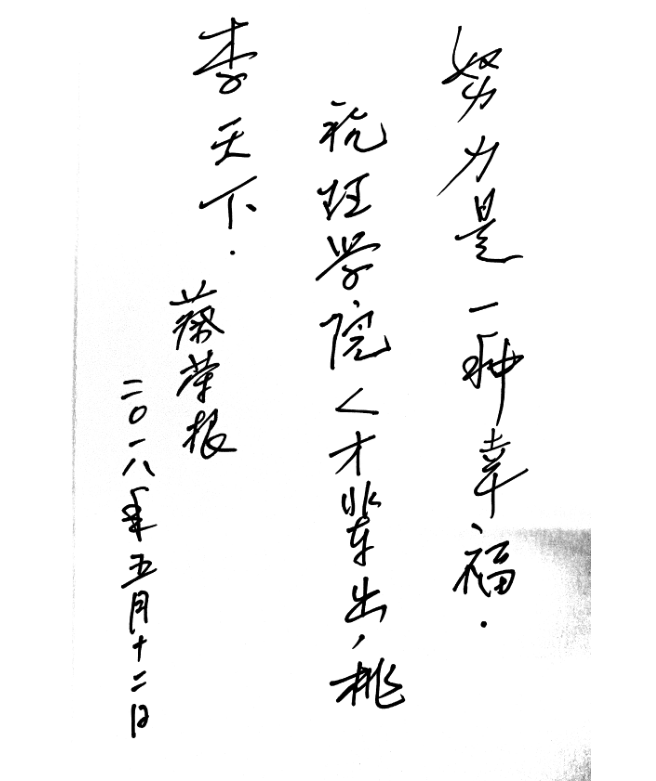 努力是一种幸福.
祝理学院人才辈出，桃
李天下.
蔡荣根
二〇一八年五月十二日